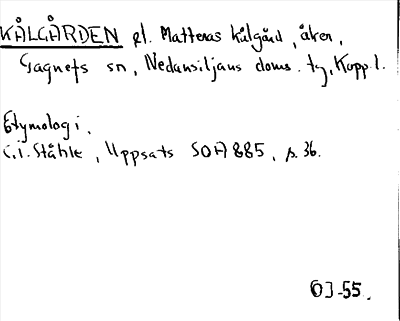 KÅLGÅRDEN el. Matteras kålgård, åker,
Gagnefs sn, Nedansiljans doms. tg, Kopp. l.
Etymologi.
C.I. Ståhle, Uppsats SOA 885, s. 36.
OJ -55.